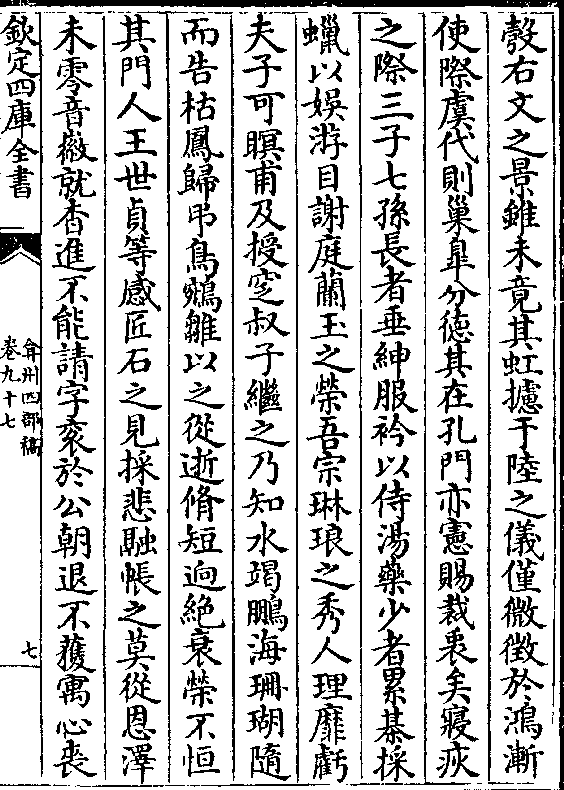 彀右文之景雖未竟其虹攄干陸之儀僅微徴於鴻漸
使際虞代則巢臯分徳其在孔門亦憲賜裁裘矣寢疢
之際三子七孫長者垂紳服衿以侍湯藥少者累棊採
蠟以娯游目謝庭蘭玉之榮吾宗琳琅之秀人理靡虧
夫子可瞑甫及授窆叔子繼之乃知水竭鵬海珊瑚隨
而告枯鳳歸弔鳥鵷雛以之從逝脩短逈絶衰榮不恒
其門人王世貞等感匠石之見採悲融帳之莫從恩澤
未零音徽就杳進不能請字衮於公朝退不獲寓心喪
欽定四庫全書
弇州四部稿
卷九十七
七